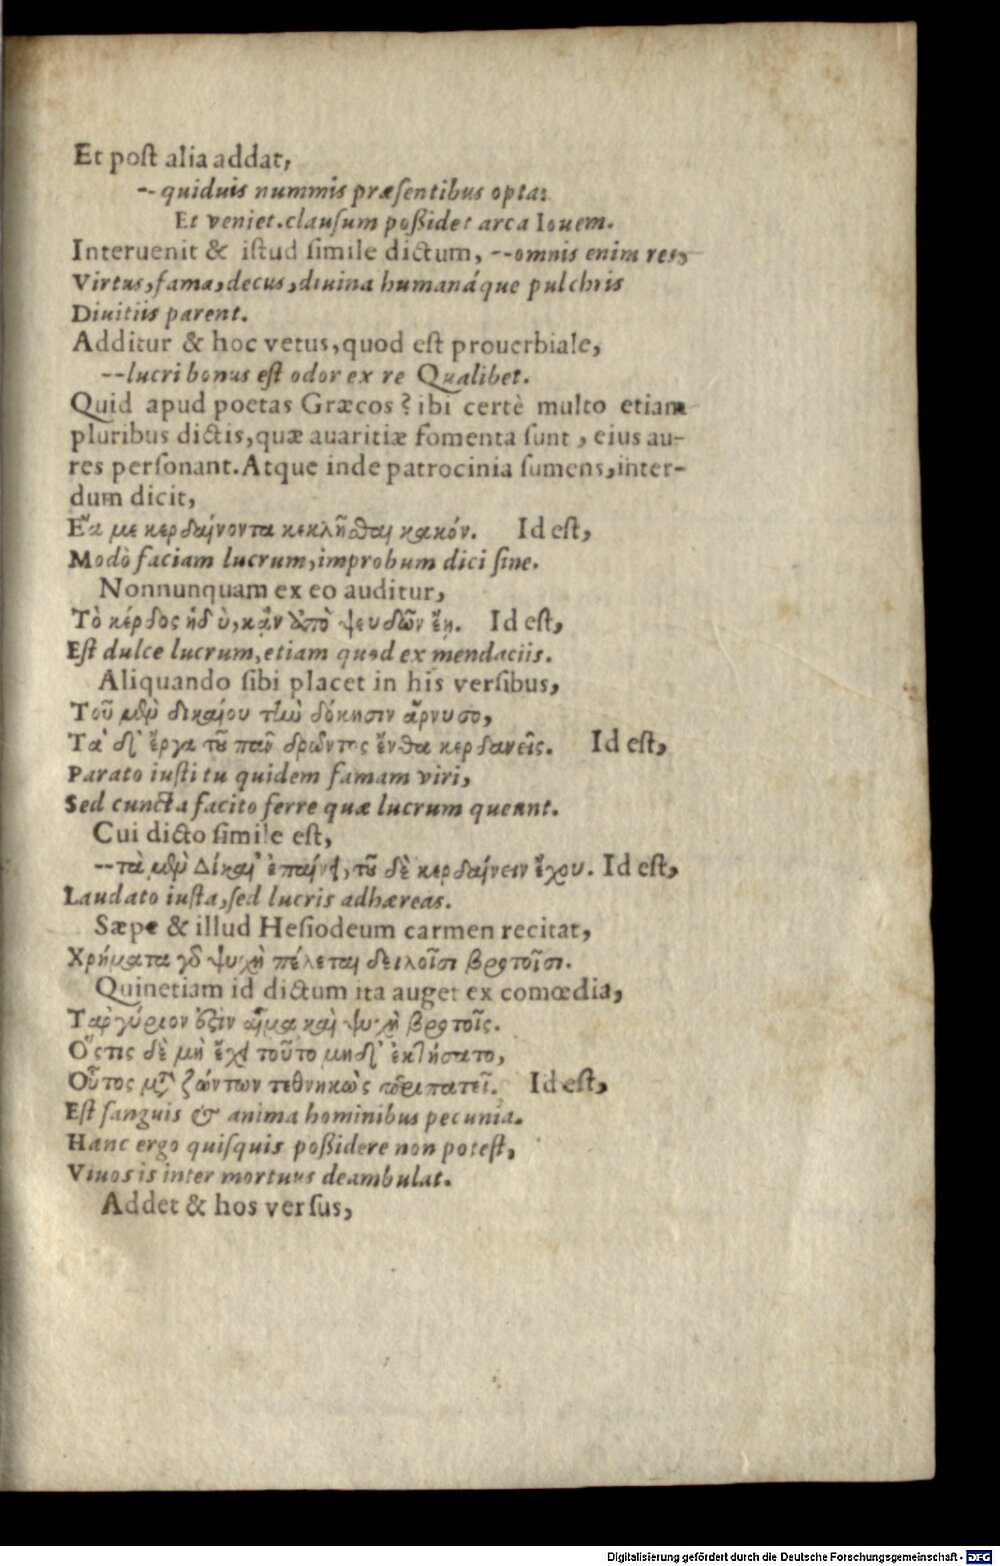 Et post alia addat,
-- quiduis nummis præsentibus opta:
Et veniet. clausum poßidet arca Iouem.
Interuenit & istud simile dictum, -- omnis enim res,
Virtus, fama, decus, diuina humanáque pulchris
Diuitiis parent.
Additur & hoc vetus, quod est prouerbiale,
-- lucri bonus est odor ex re Qualibet.
Quid apud poetas Græcos? ibi certè multo etiam
pluribus dictis, quæ auaritiæ fomenta sunt, eius au-
res personant. Atque inde patrocinia sumens, inter-
dum dicit,
Ἔα με κερδαίνοντα κεκλῆσθαι κακόν. Id est,
Modò faciam lucrum, improbum dici sine.
Nonnunquam ex eo auditur,
Τὸ κέρδος ἡδὺ, κἂν ἀπὸ ψευδῶν ἔῃ. Id est,
Est dulce lucrum, etiam quod ex mendaciis.
Aliquando sibi placet in his versibus,
Τοῦ μὲν δικαίου τὴν δόκησιν ἄρνυσο,
Τὰ δ' ἔργα τοῦ πᾶν δρῶντος ἔνθα κερδανεῖς. Id est,
Parato iusti tu quidem famam viri,
Sed cuncta facito ferre quæ lucrum queant.
Cui dicto simile est,
-- τὰ μὲν Δίκαι' ἐπαίνει, τοῦ δὲ κερδαίνειν ἔχου. Id est,
Laudato iusta, sed lucris adhæreas.
Sæpe & illud Hesiodeum carmen recitat,
Χρήματα γὰρ ψυχὴ πέλεται δειλοῖσι βροτοῖσι.
Quinetiam id dictum ita auget ex comœdia,
Τἀργύριον ἐστὶν αἷμα καὶ ψυχὴ βροτοῖς.
Ὅστις δὲ μὴ ἔχει τοῦτο μηδ' ἐκτήσατο,
Οὗτος μετὰ ζώντων τεθνηκὼς περιπατεῖ. Id est,
Est sanguis & anima hominibus pecunia.
Hanc ergo quisquis poßidere non potest,
Viuos is inter mortuus deambulat.
Addet & hos versus,
Digitalisierung gefördert durch die Deutsche Forschungsgemeinschaft - DFG